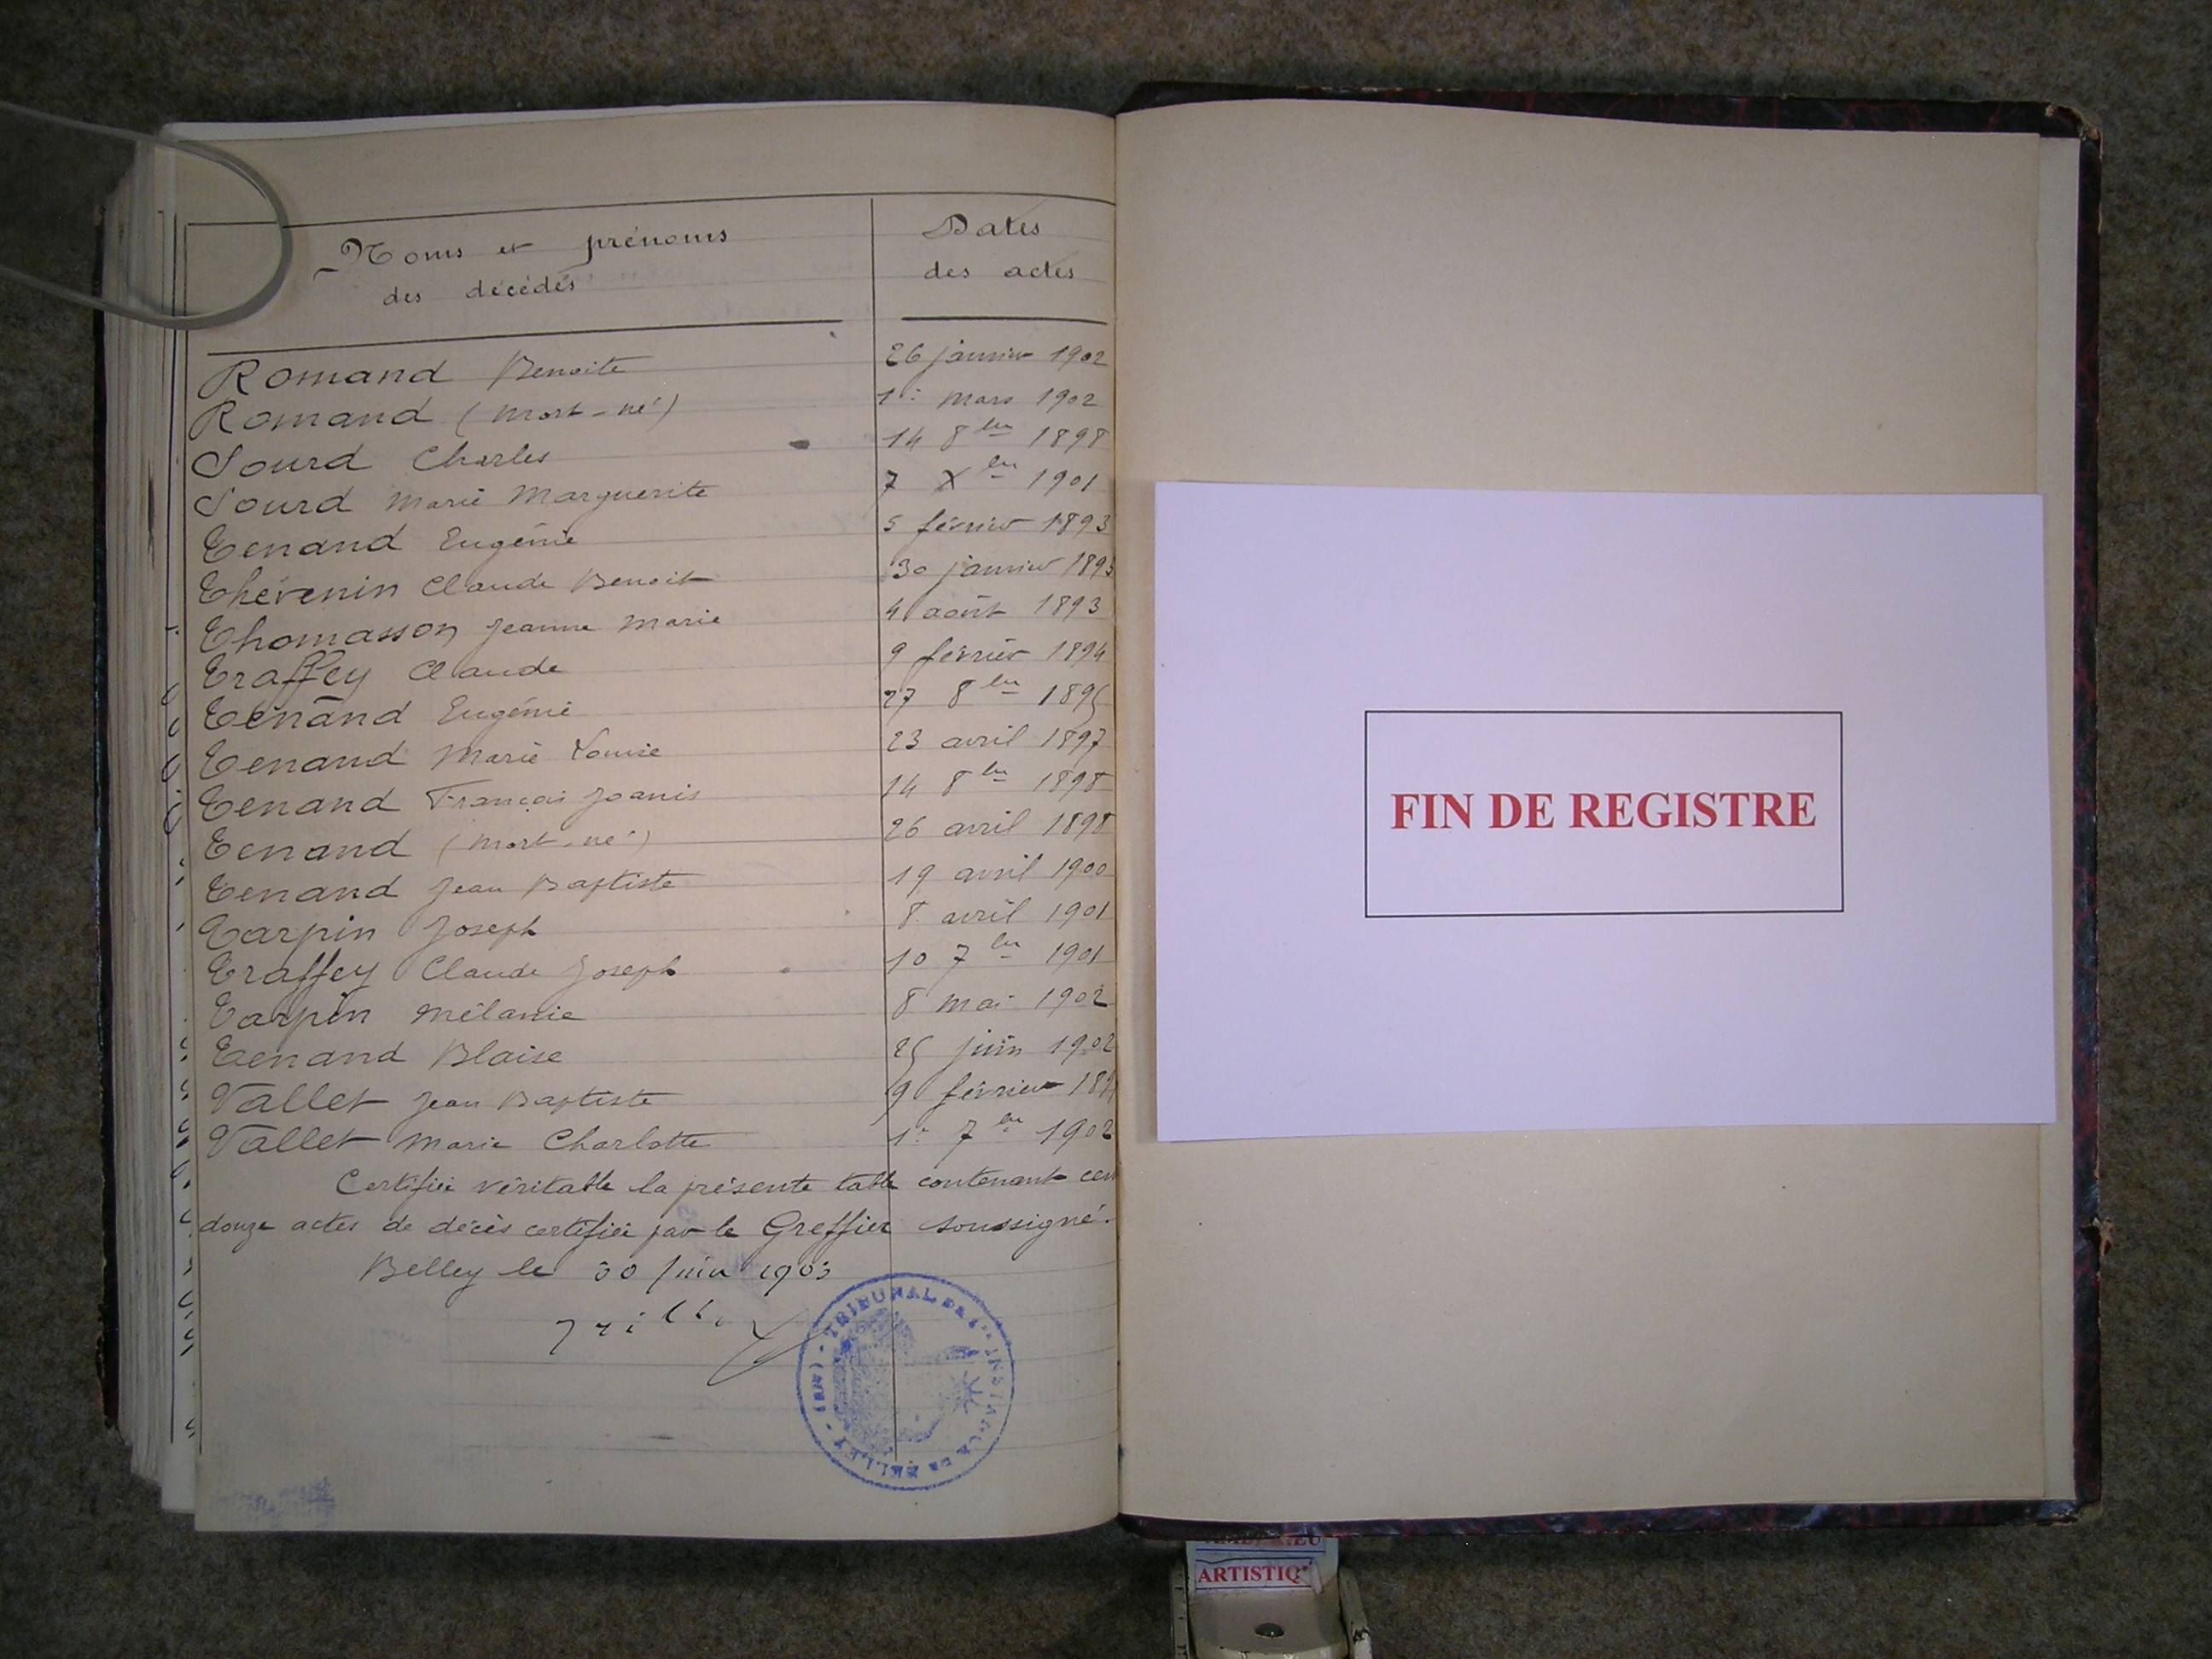 Noms et prénoms
des décédés
Dates
des actes
Romand Benoite 26 janvier 1902
Romand (mort-né) 1er mars 1902
Sourd Charles 14 8bre 1898
Sourd Marie Marguerite 7 Xbre 1901
Tenand Eugénie 5 février 1893
Thévenin Claude Benoit 30 janvier 1893
Thomasson Jeanne Marie 4 août 1893
Traffey Claude 9 février 1894
Tenand Eugénie 27 8bre 1895
Tenand Marie Louise 23 avril 1897
Tenand François Joanis 14 8bre 1898
Tenand (mort-né) 26 avril 1898
Tenand Jean Baptiste 19 avril 1900
Tarpin Joseph 8 avril 1901
Traffey Claude Joseph 10 7bre 1901
Tarpin Mélanie 8 mai 1902
Tenand Blaise 25 juin 1902
Vallet Jean Baptiste 9 février
Vallet Marie Charlotte 1er 7bre 1902
Certifiée véritable la présente table contenant
douze actes de décès certifiée par le Greffier soussigné.
Belley le 30 Juin 1903
TRIBUNAL DE 1re INSTANCE DE BELLEY - (AIN) -
FIN DE REGISTRE
ARTISTIQ